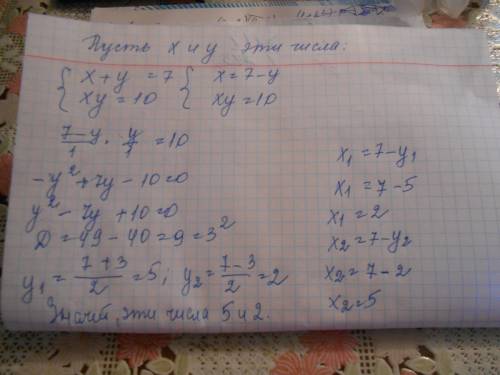 Пусть x и y эти числа:
{ x + y = 7 { x = 7 - y
{ xy = 10 { xy = 10
(7-y)/1 · y/1 = 10
-y² + 7y - 10 = 0
y² - 7y + 10 = 0
D = 49 - 40 = 9 = 3²
y₁ = (7+3)/2 = 5; y₂ = (7-3)/2 = 2
Значит, эти числа 5 и 2.
x₁ = 7 - y₁
x₁ = 7 - 5
x₁ = 2
x₂ = 7 - y₂
x₂ = 7 - 2
x₂ = 5